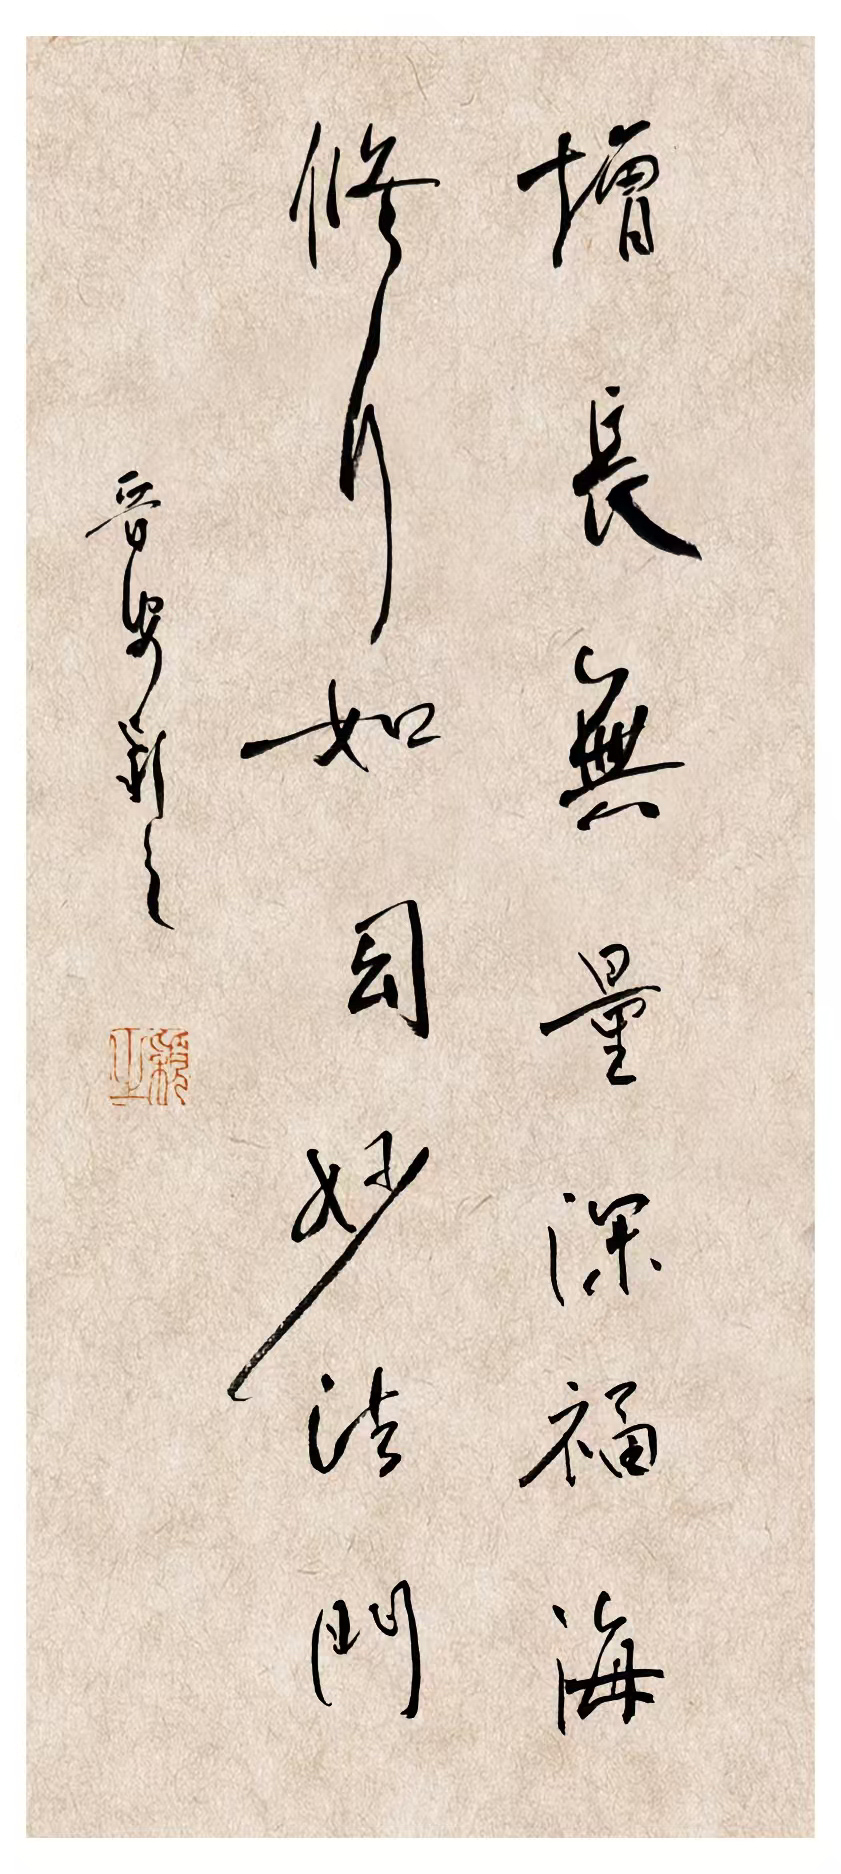 增長無量深福海
修行如幻妙法門
晉安之